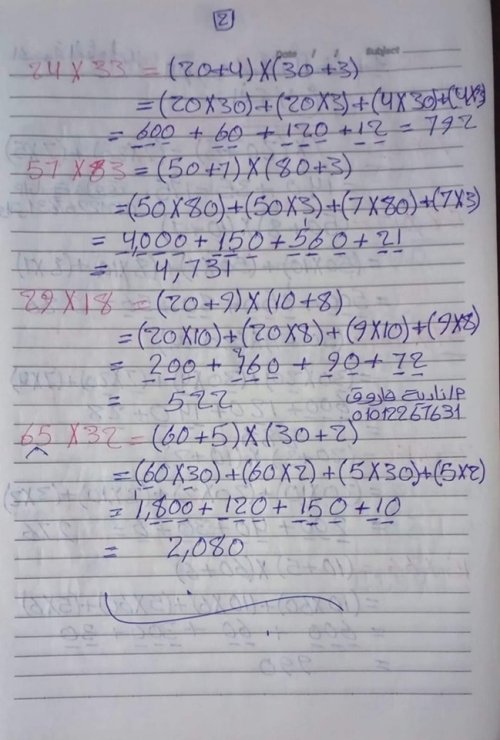 2
Date / / Subject
24 X 33 = (20+4) X (30+3)
= (20X30)+(20X3)+(4X30)+(4X3
= 600 + 60 + 120 + 12 = 792
57 X 83 = (50+7) X (80+3)
=(50X80)+(50X3)+(7X80)+(7X3)
= 4,000 + 150 + 560 + 21
= 4,731
29 X 18 = (20+9) X (10+8)
=(20X10)+(20X8)+(9X10)+(9X8)
= 200 + 160 + 90 + 72
= 522
01012267631
65 X 32 = (60+5) X (30+2)
=(60X30)+(60X2)+(5X30)+(5X2)
= 1,800 + 120 + 150 + 10
= 2,080